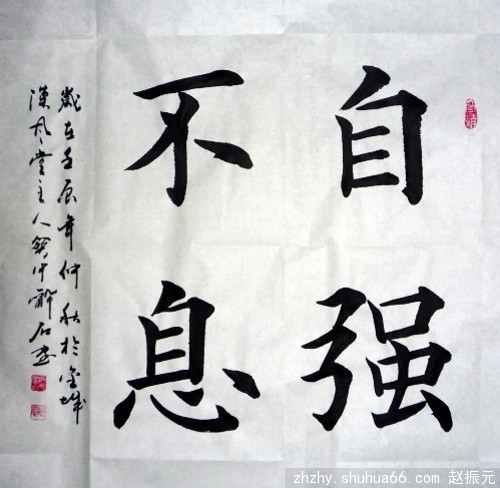 自强
不息
岁在壬辰年仲秋於金城
汉风堂主人
zhzhy.shuhua66.com 赵振元